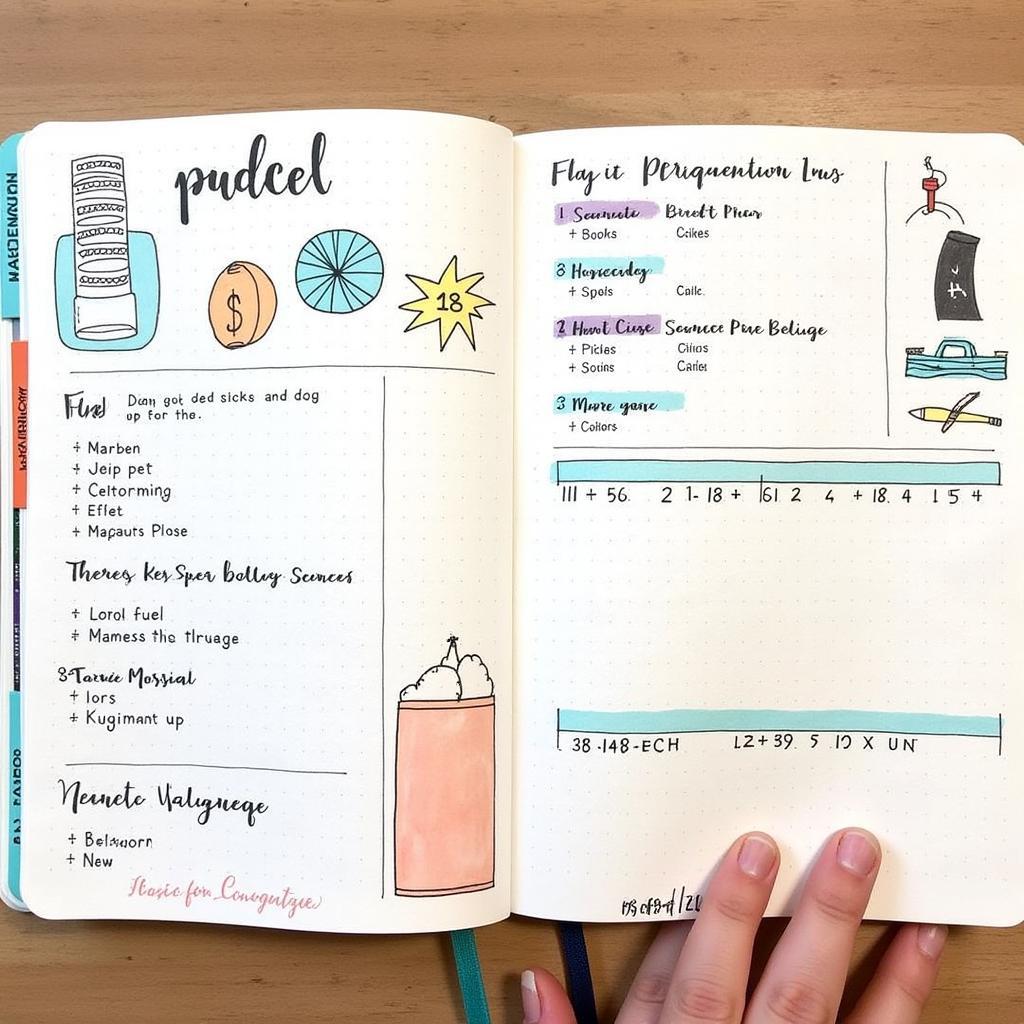 pudcel
$
18
Find Dan got ded sicks and dog
up for the.
+ Marben
+ Jeip pet
+ Celtorming
+ Efflet
+ Mapauts Plose
Therey Kes Spea Balley Scences
+ Lorol fuel
+ Mamess the tlruage
8-Tarvie Mossial
+ lors
+ Kugimant up
Neunete Valigneqe
+ Belsworn
+ New
Flay it Periquentiwn Inus
1 Seamuote Bredt Picur
+ Books Cakes
3 Hayrecday
+ Spols Callc.
2 Hwot Ciuse Sounce Pine Beliuge
+ Picles Cilius
+ Sotins Carlet
3 Mowre gawe
+ Coltors
111 + 56. 2 1- 18 + 161 2 4 + 18. 4 1 5 4
38 -148-ECH L2+39 5 19 X UN